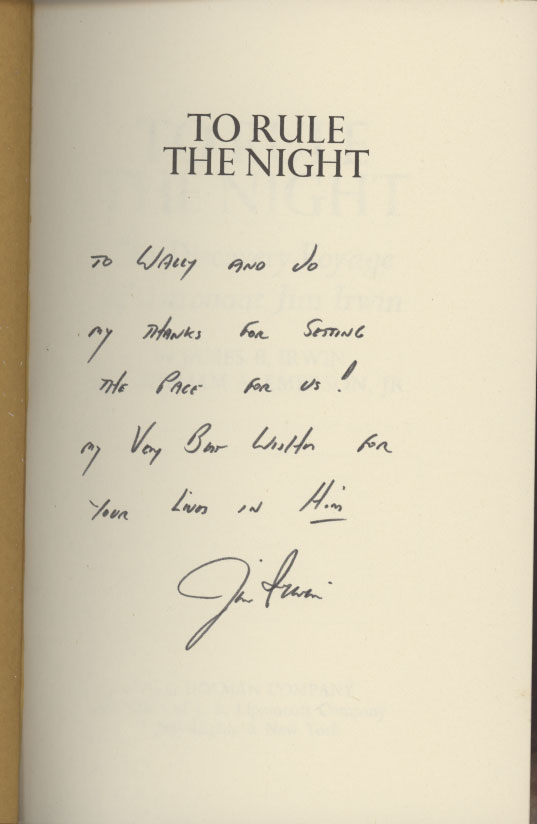 TO RULE
THE NIGHT
TO WALLY AND JO
MY THANKS FOR SETTING
THE PACE FOR US!
MY VERY BEST WISHES FOR
YOUR LIVES IN HIM
Jim Irwin